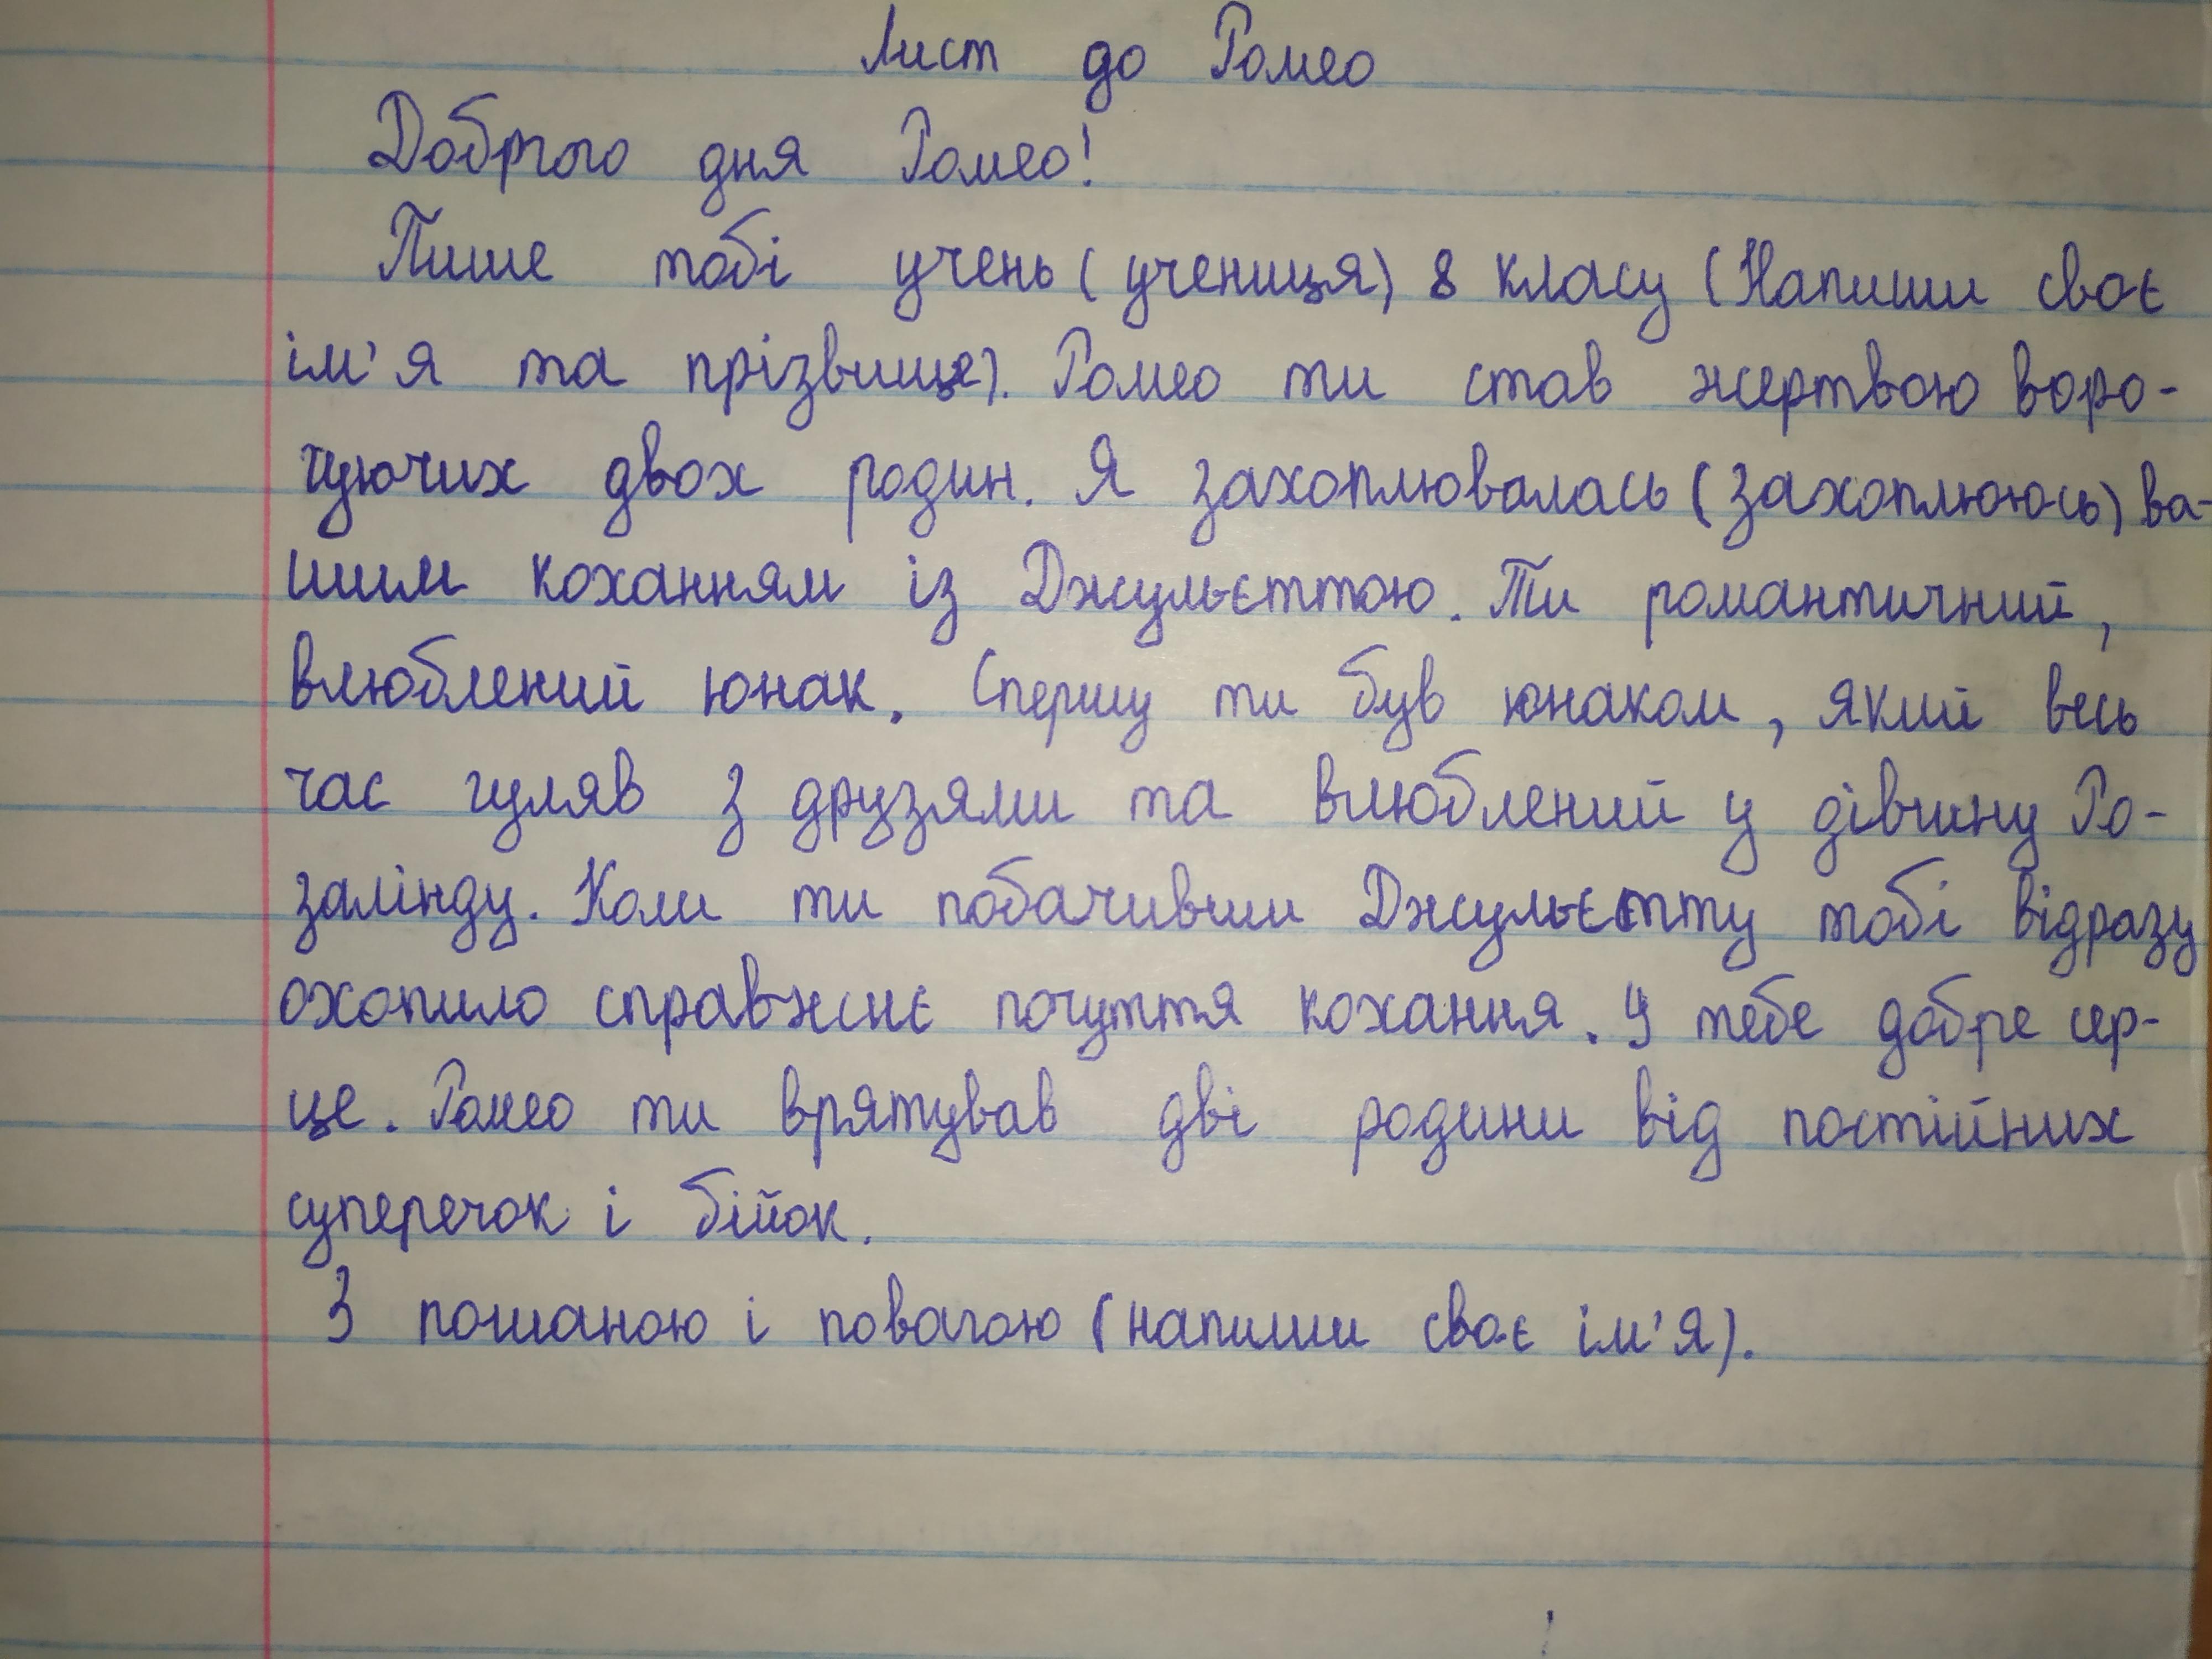 Лист до Ромео
Доброго дня Ромео!
Пише тобі учень (учениця) 8 класу (Напиши своє
ім'я та прізвище). Ромео ти став жертвою воро-
гуючих двох родин. Я захоплювалась (захоплююсь) ва-
шим коханням із Джульєттою. Ти романтичний,
влюблений юнак. Спершу ти був юнаком, який весь
час гуляв з друзями та влюблений у дівчину Ро-
залінду. Коли ти побачивши Джульєтту тобі відразу
охопило справжнє почуття кохання. У тебе добре сер-
це. Ромео ти врятував дві родини від постійних
суперечок і бійок.
З пошаною і повагою (напиши своє ім'я).